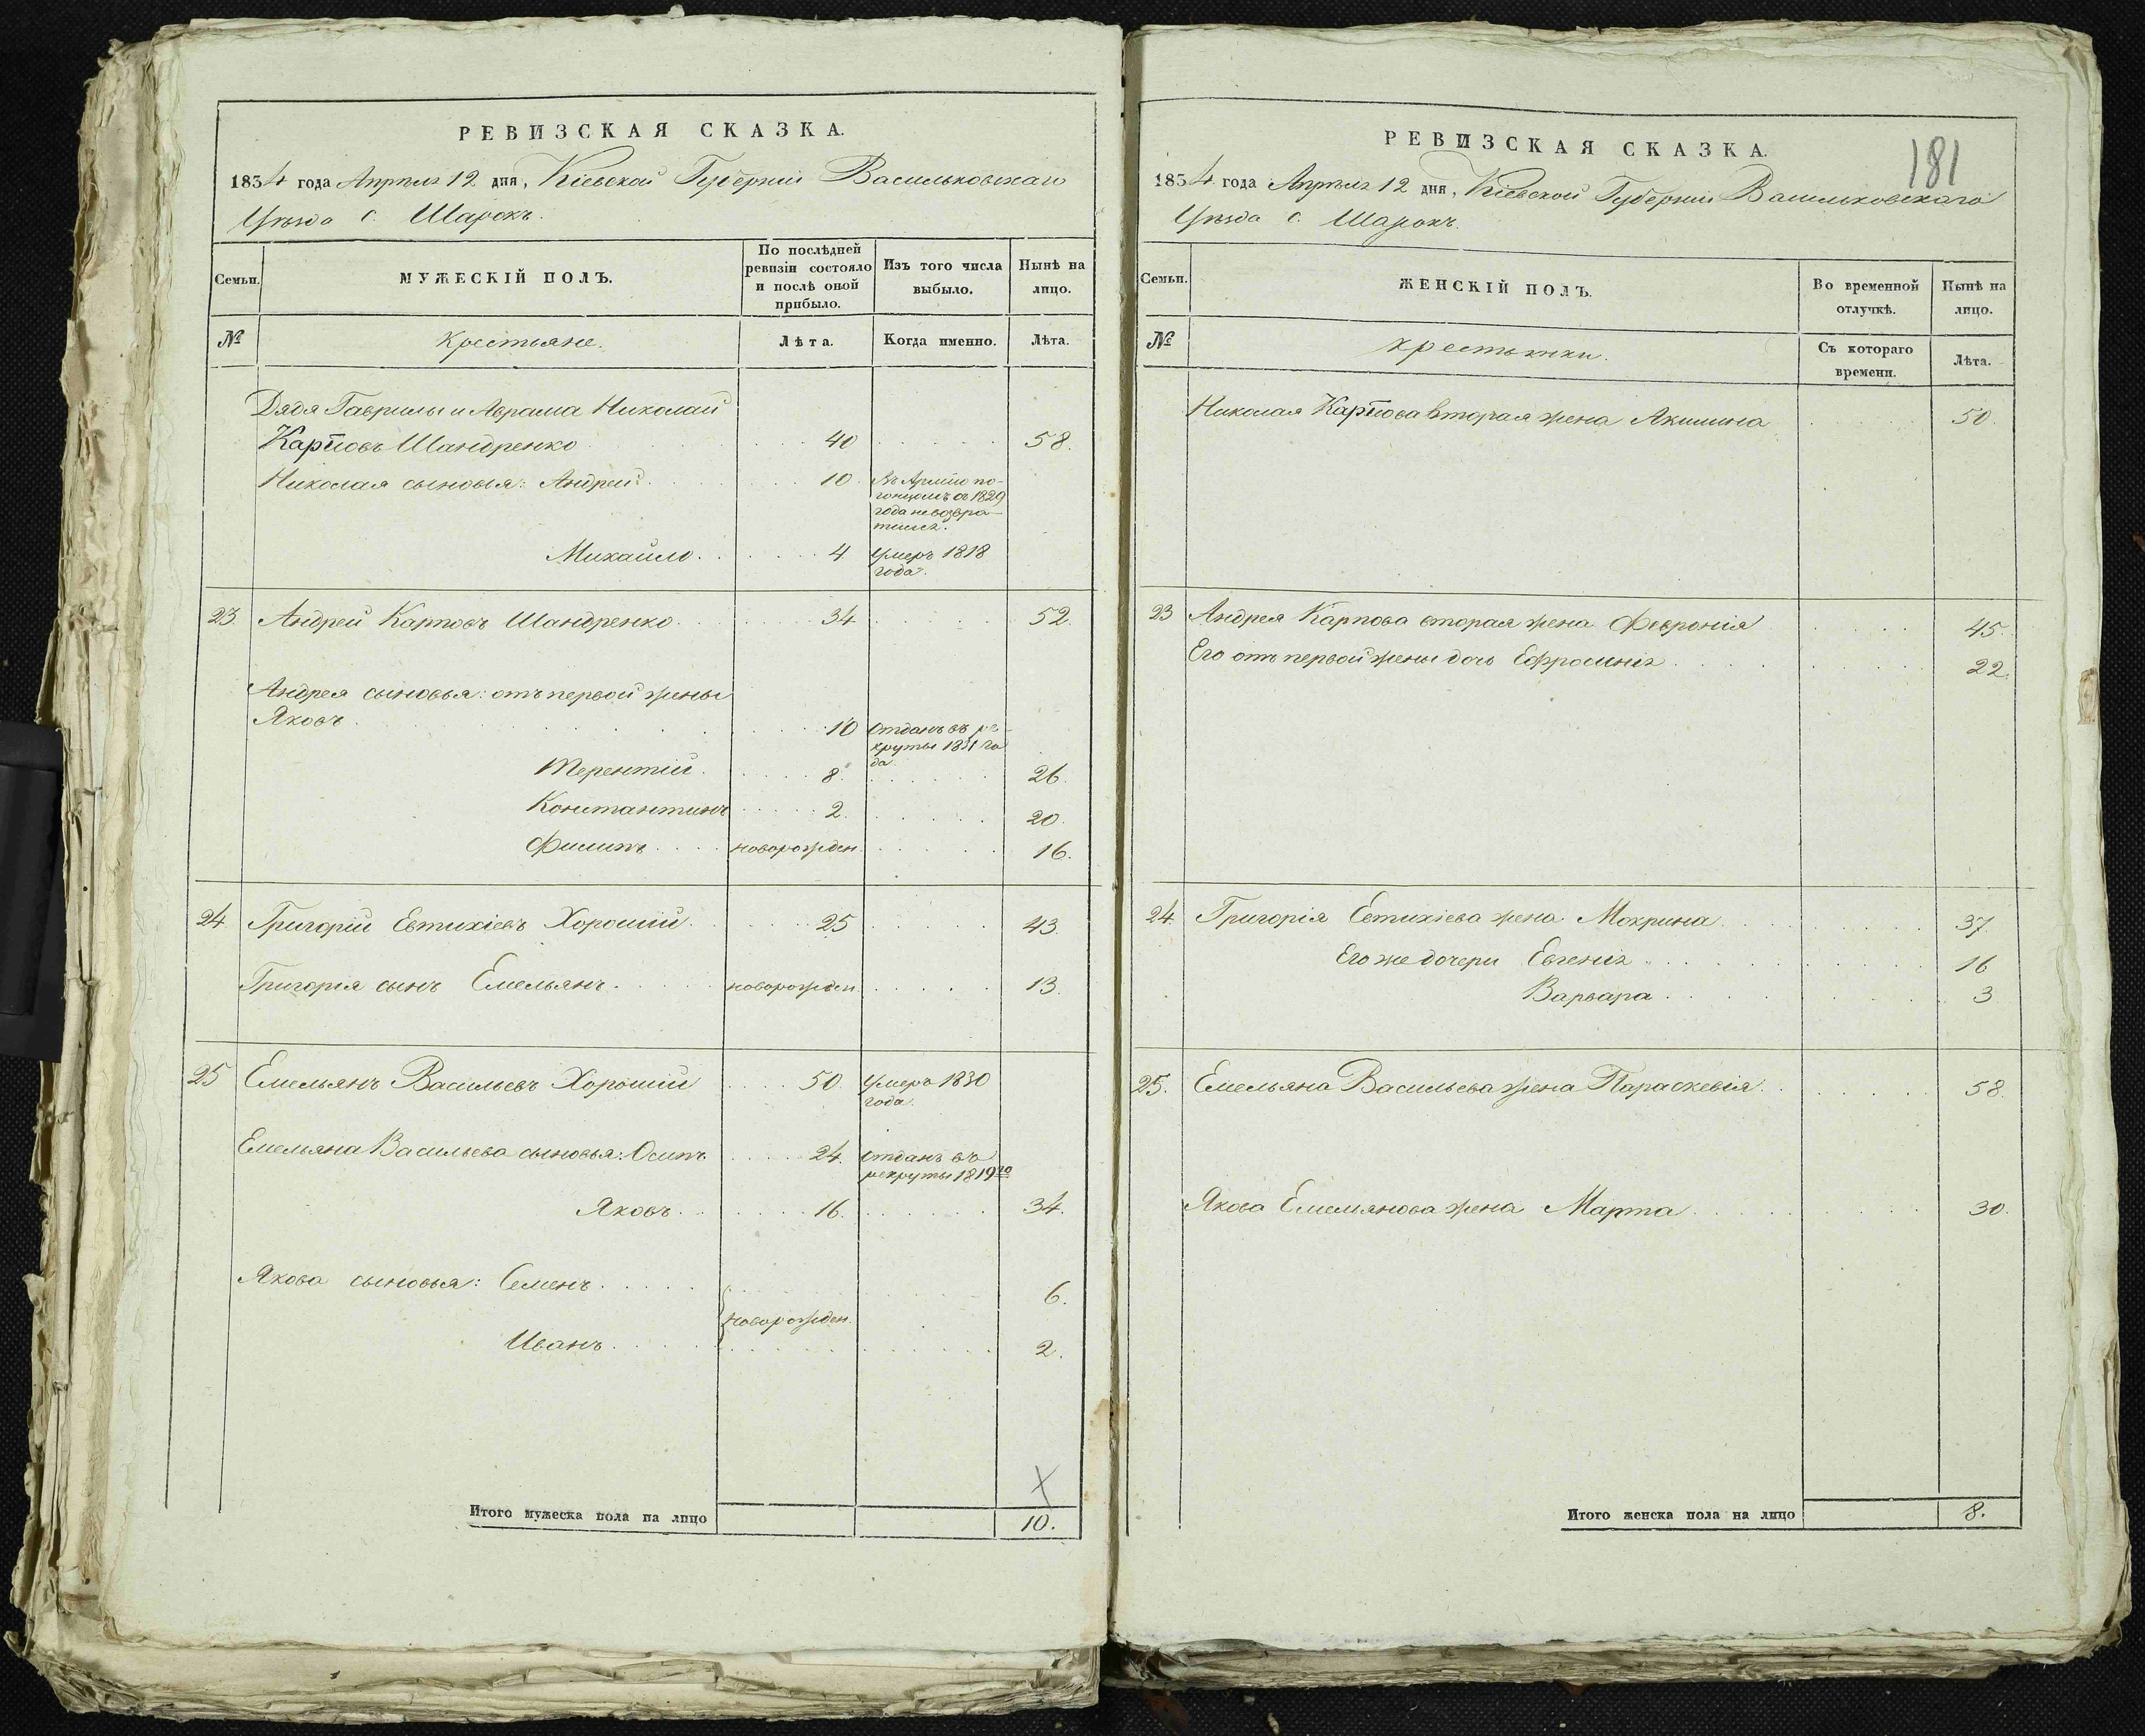 РЕВИЗСКАЯ СКАЗКА.
1834 года Апрѣля 12 дня, Кіевской Губерніи Васильковскаго
Уѣзда с. Шарокъ.
Семьи.
МУЖЕСКІЙ ПОЛЪ.
По послѣдней ревизіи состояло и послѣ оной прибыло.
Изъ того числа выбыло.
Нынѣ на лицо.
№ Крестьяне. Лѣта. Когда именно. Лѣта.
Дядя Гаврилы и Аврама Николай
Карповъ Шандренко 40 58.
Николая сыновья: Андрей 10 Въ Армію по-
гонцомъ съ 1829
года невозвра-
тился.
Михайло 4 Умеръ 1818
года.
23 Андрей Карповъ Шандренко 34 52.
Андрея сыновья: отъ первой жены
Яковъ 10 Отданъ въ ре-
круты 1831 го
да.
Терентій 8. 26.
Константинъ 2. 20.
Филипъ новорожден. 16.
24 Григорій Евтихіевъ Хорошій 25 43.
Григорія сынъ Емельянъ новорожден 13.
25 Емельянъ Васильевъ Хорошій 50. Умеръ 1830
года.
Емельяна Васильева сыновья: Осипъ 24. Отданъ въ
рекруты 1819го
Яковъ 16. 34.
Якова сыновья: Семенъ 6.
новорожден.
Иванъ 2.
Итого мужеска пола на лицо 10.
РЕВИЗСКАЯ СКАЗКА.
181
1834 года Апрѣля 12 дня, Кіевской Губерніи Васильковскаго
Уѣзда с. Шарокъ.
Семьи.
ЖЕНСКІЙ ПОЛЪ.
Во временной отлучкѣ.
Нынѣ на лицо.
№ Крестьянки. Съ котораго времени. Лѣта.
Николая Карпова вторая жена Акилина 50.
23 Андрея Карпова вторая жена Февронія 45.
Его отъ первой жены дочь Ефросинія 22.
24. Григорія Евтихіева жена Мокрина 37.
Его же дочери Евгенія 16
Варвара 3
25. Емельяна Васильева жена Параскевія 58.
Якова Емельянова жена Марта 30.
Итого женска пола на лицо 8.